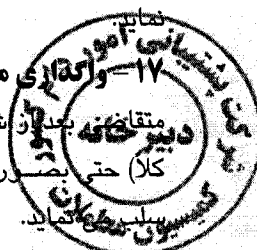 نماید.
۱۷ – واگذاری
متقاضی بعد از
کلاً) حتی بصورت
سلب می نماید.
شرکت پشتیبانی امور دام کشور
دبیرخانه
کمیسیون معاملات